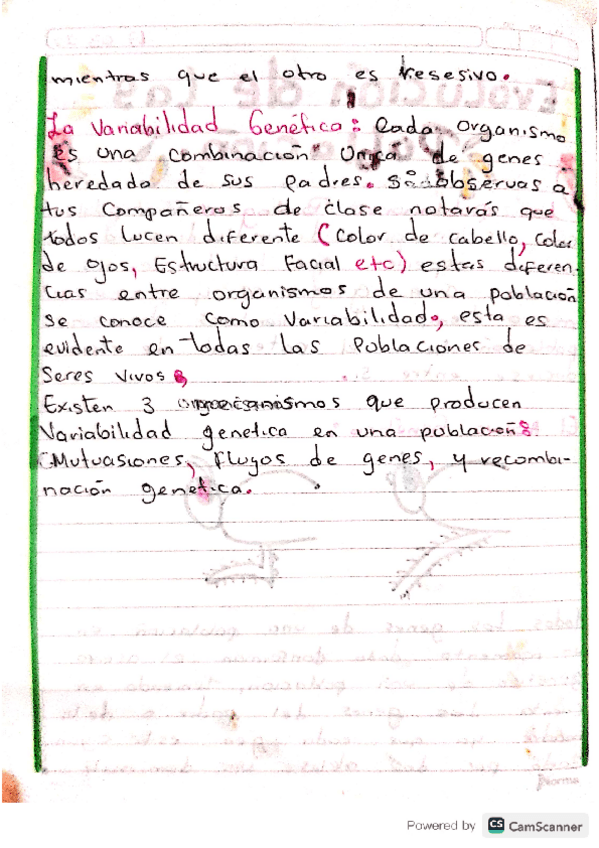 mientras que el otro es resesivo.
La Variabilidad Genética: Cada organismo
es una combinación Unica de genes
heredado de sus padres. Si observas a
tus Compañeros de clase notarás que
todos lucen diferente (Color de cabello, Color
de ojos, Estructura Facial etc) estas diferen
cias entre organismos de una población
se conoce como Variabilidad, esta es
evidente en todas las Poblaciones de
Seres vivos,
Existen 3 que producen
Variabilidad genetica en una población:
Mutuasiones, Flugos de genes, y recombi-
nación genetica.
Norma
Powered by CS CamScanner